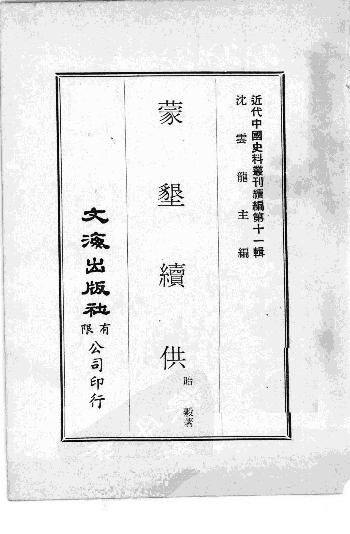 近代中國史料叢刊續編第十一輯
沈雲龍主編
蒙墾續供
貽穀著
文海出版社
有限
公司印行